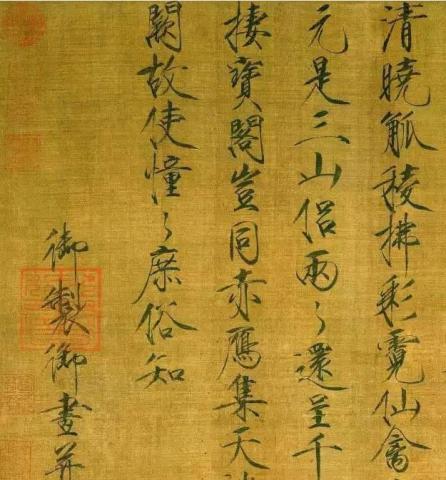 清曉觚稜拂彩霓仙禽
元是三山侶兩々還呈千
棲寶閣豈同赤鴈集天
闕故使憧々庶俗知
御製御畫并